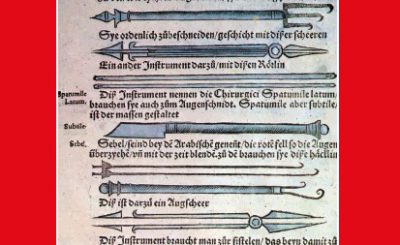 Sye ordenlich zůbeschneiden/geschicht mit diser scheeren
Ein ander Instrument darzů/mit disen Rötlin
Spatumile
Latum.
Diß Instrument nennen die Chirurgici Spatumile latum/
brauchen sye auch zům Augenschnidt. Spatumile aber subtile/
ist der massen gestaltet
Subtile.
Sebel.
Sebel/seind bey dē Arabischē genēnt/die rotē fell so die Augen
überzyehē/vñ mit der zeit blendē. zů dē brauchen sye dise häcklin
Diß ist darzů ein Augscheer
Diß Instrument braucht man zür fistelen/das beyn damit zů